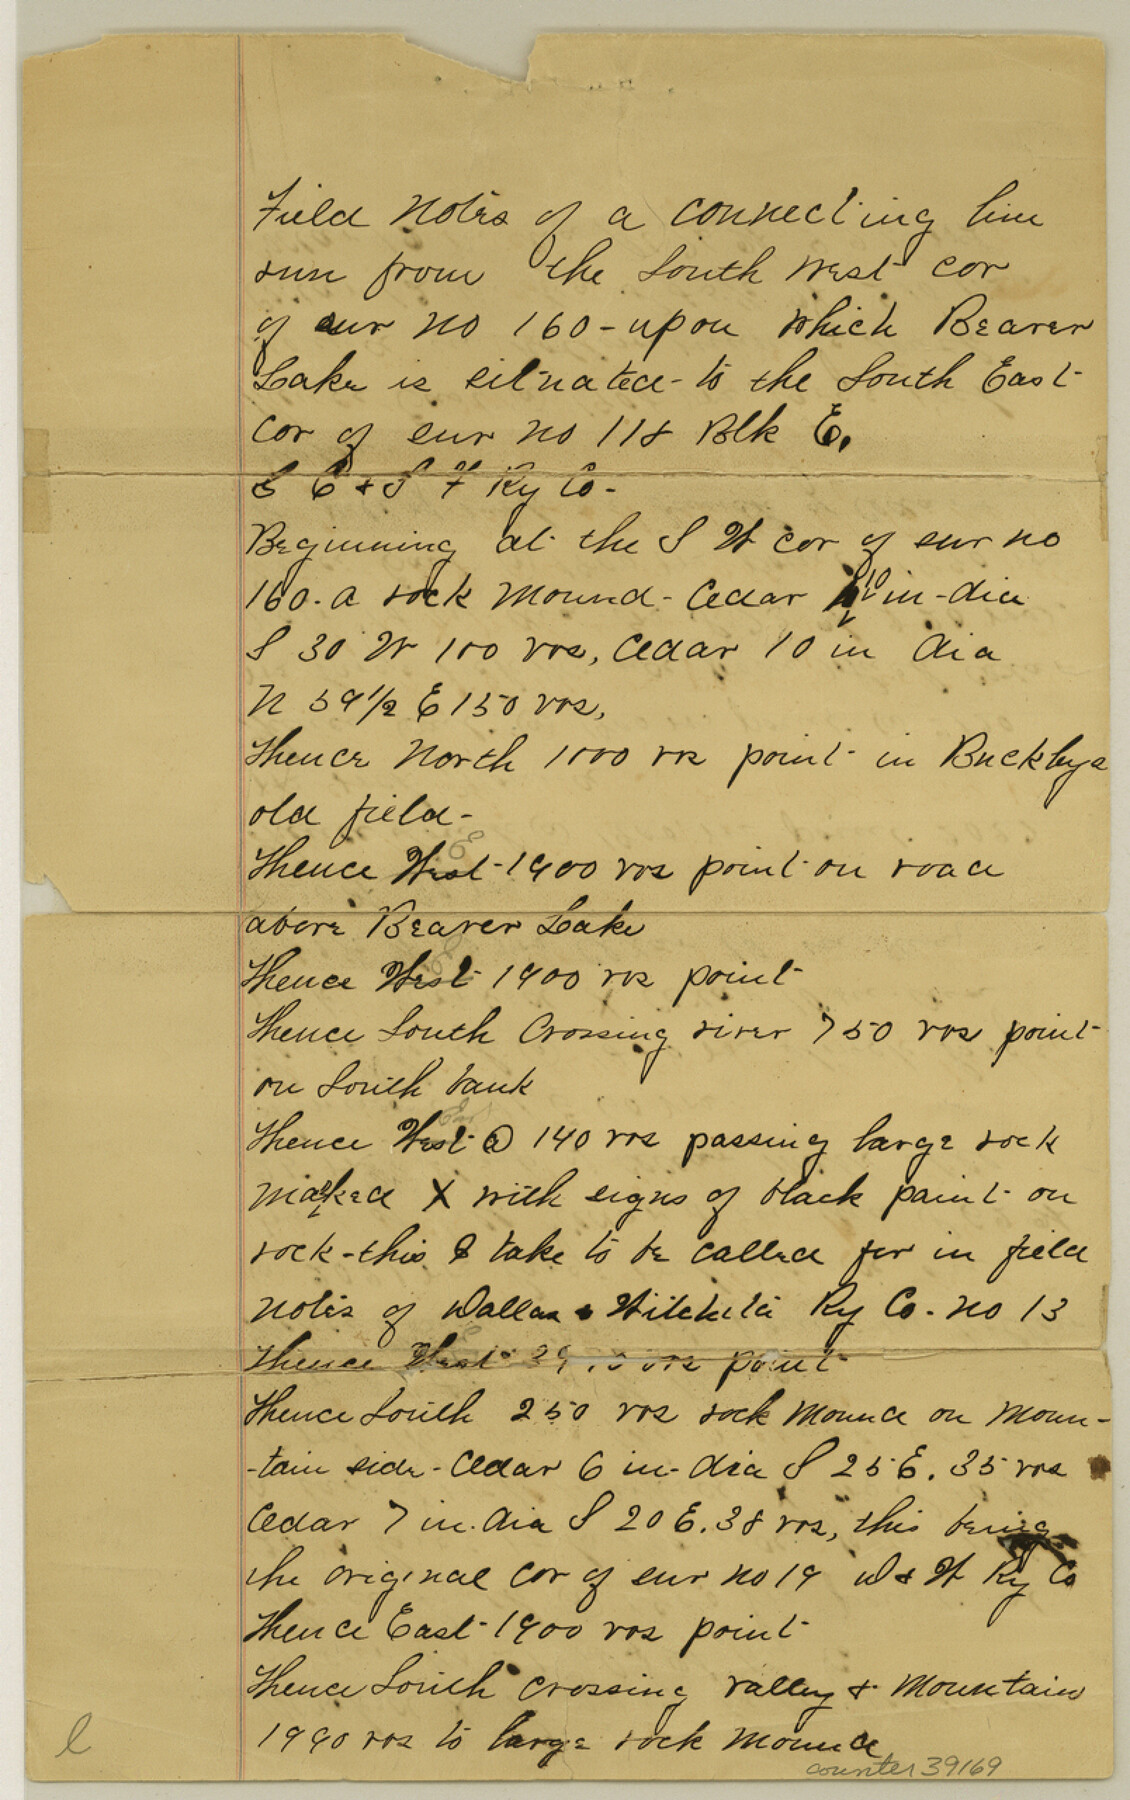 Field Notes of a connecting line
run from the South West cor
of sur no 160 - upon which Beaver
Lake is situated - to the South East
Cor of sur no 118 Blk E.
G C & S F Ry Co -
Beginning at the S W cor of sur no
160. a rock Mound - Cedar 10 in - dia
S 30 W 100 vrs, Cedar 10 in dia
N 59 1/2 E 150 vrs,
Thence North 1000 vrs point in
old field -
Thence West - 1900 vrs point on road
above Beaver Lake
Thence West 1900 vrs point
Thence South Crossing river 750 vrs point
on South bank
Thence West @ 140 vrs passing large rock
marked X with signs of black paint on
rock - this I take to be called for in field
notes of Dallas & Witchita Ry Co - no 13
Thence West vrs point
Thence South 250 vrs rock Mound on Moun-
-tain side - Cedar 6 in - dia S 25 E. 35 vrs
Cedar 7 in. dia S 20 E. 38 vrs, this being
the original Cor of sur no 19 D & W Ry Co
Thence East - 1900 vrs point
Thence South crossing valley & Mountain
1990 vrs to large rock Mound
counter 39169